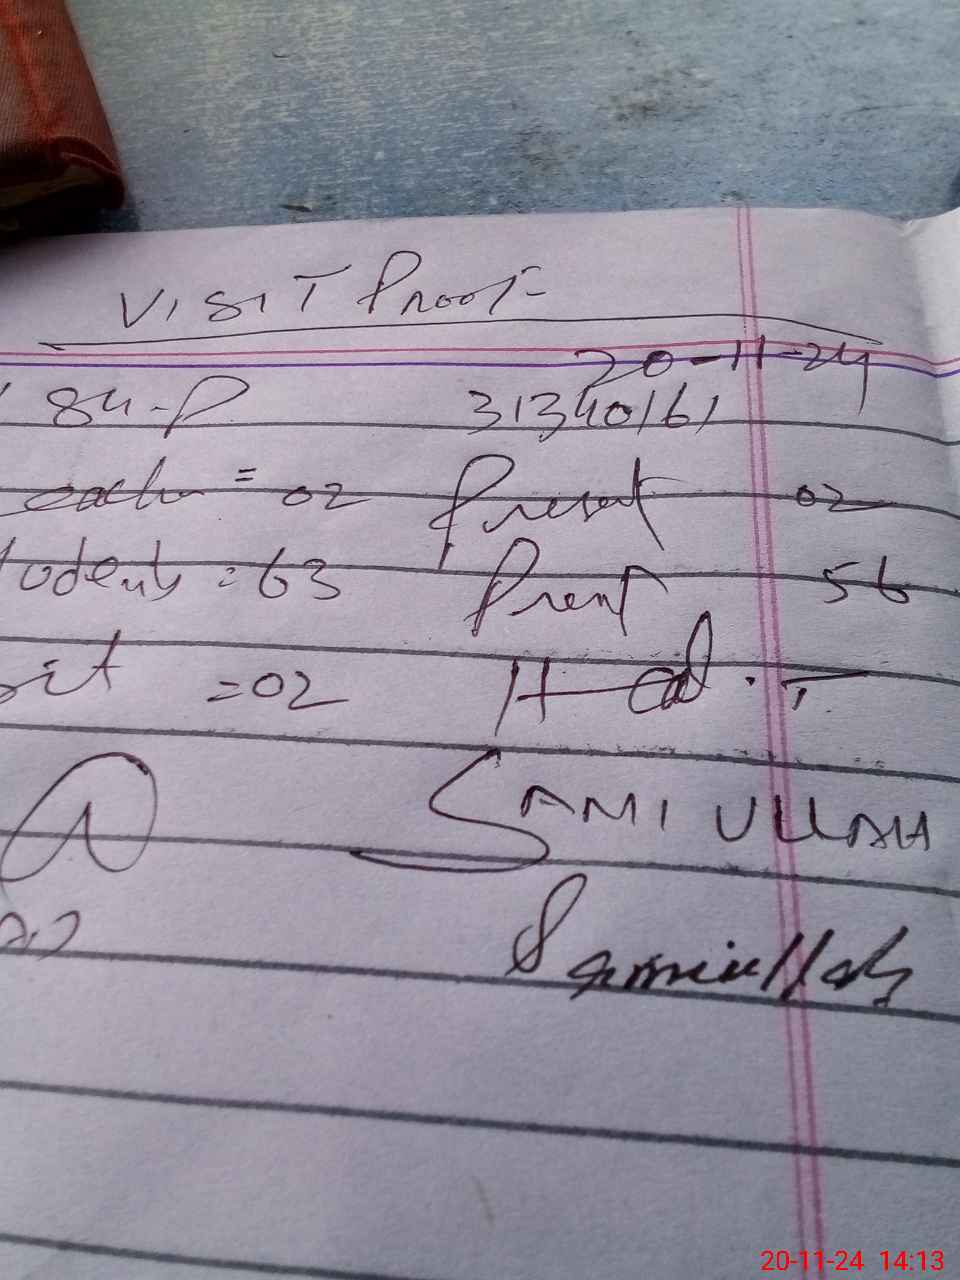 VISIT Proof
20-11-24
84-P 31340161
each = 02 Present 02
tudents = 63 Prent 56
sit = 02 Head. T
SAMI ULLAH
Samiullah
20-11-24 14:13